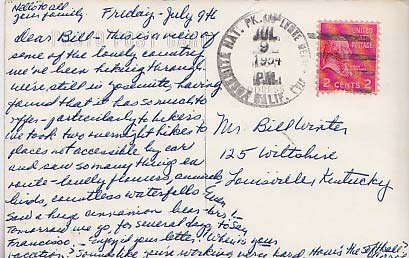 Hello to all
your family
Friday - July 9th
Dear Bill - This is a view of
some of the lovely country
we've been hiking through.
We're still in Yosemite, having
found that it has so much to
offer - particularly to hikers.
We took two overnight hikes to
places not accessible by car
and saw so many things en
route - lovely flowers, animals
birds, countless waterfalls. Even
saw a huge cinnamon bear -
Tomorrow we go for several days to San
Francisco - Enjoyed your letter. When is your
vacation? Sounds like you're working very hard. How's the softball
YOSEMITE NAT. PK.
CALIF.
JUL
9
1954
PM
UNITED STATES
POSTAGE
2 CENTS 2
Mr. Bill Winter
125 Wiltshire
Louisville, Kentucky